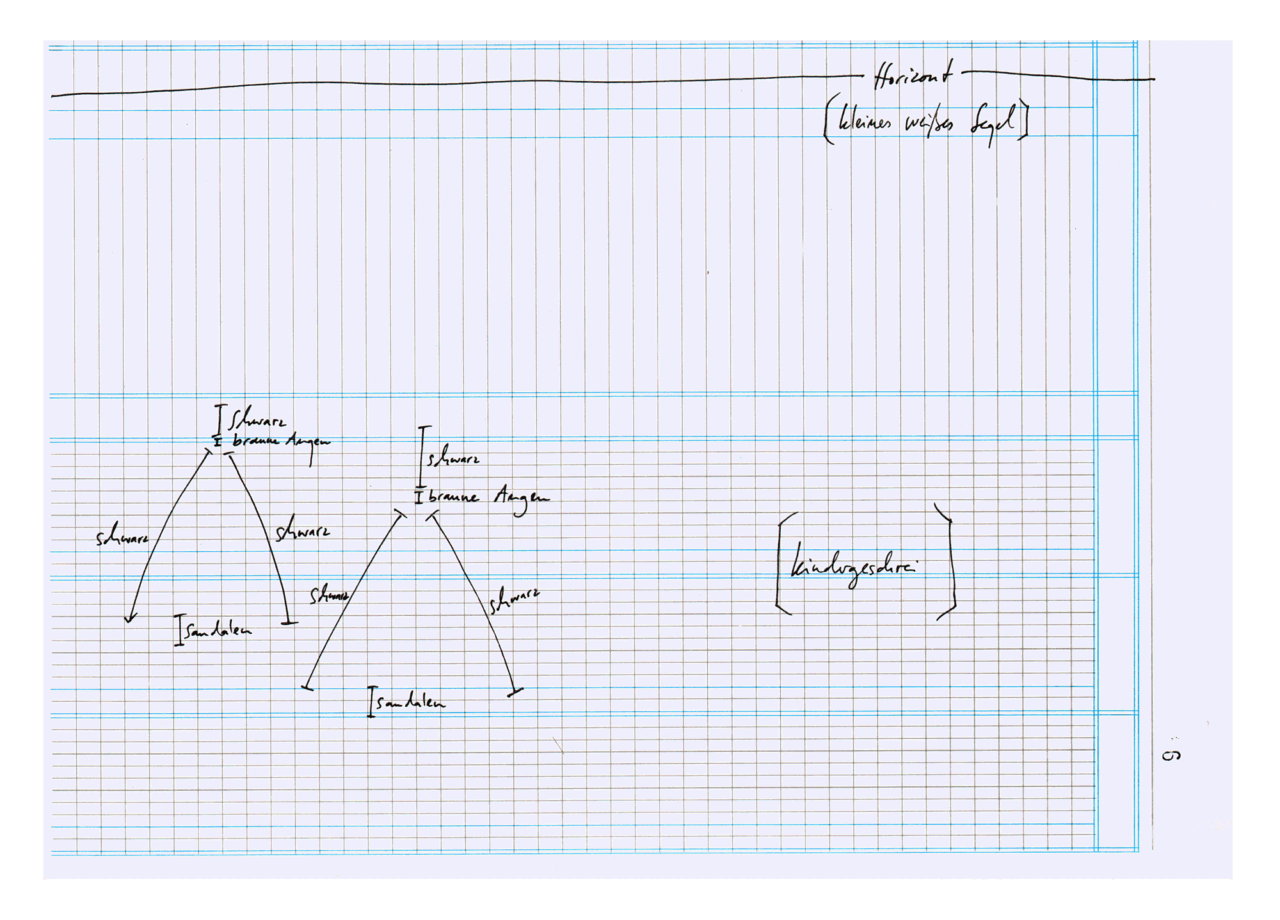 Horizont
[kleines weißes Segel]
Schwarz
braune Augen
schwarz
braune Augen
schwarz
schwarz
[Kindergeschrei]
Schwarz
schwarz
Sandalen
sandalen
6